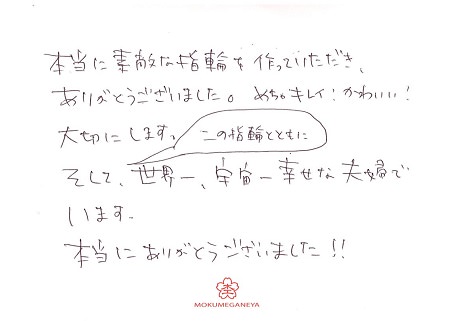 本当に素敵な指輪を作っていただき、
ありがとうございました。めちゃキレイ!かわいい!
大切にします。
この指輪とともに
そして、世界一、宇宙一幸せな夫婦で
います。
本当にありがとうございました!!
MOKUMEGANEYA